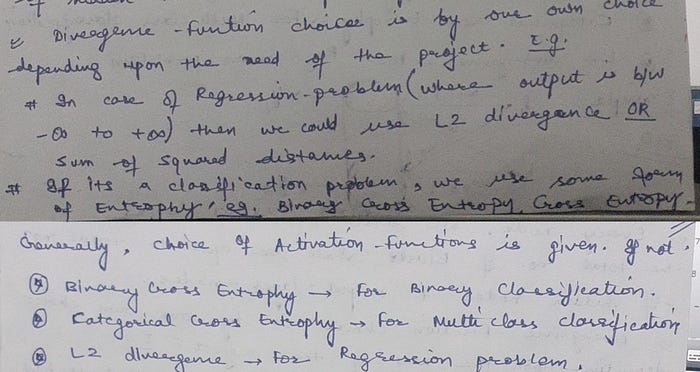 Divergence-function choice is by our own choice
depending upon the need of the project. E.g.
# In case of Regression-problem (where output is b/w
-∞ to +∞) then we could use L2 divergence OR
Sum of Squared distances.
# If its a classification problem, we use some form
of Entrophy, eg. Binary Cross Entropy, Cross Entropy.
Generally, choice of Activation-functions is given. If not,
Binary Cross Entrophy → For Binary Classification.
Categorical Cross Entrophy → For Multi class classification
L2 divergence → For Regression problem.